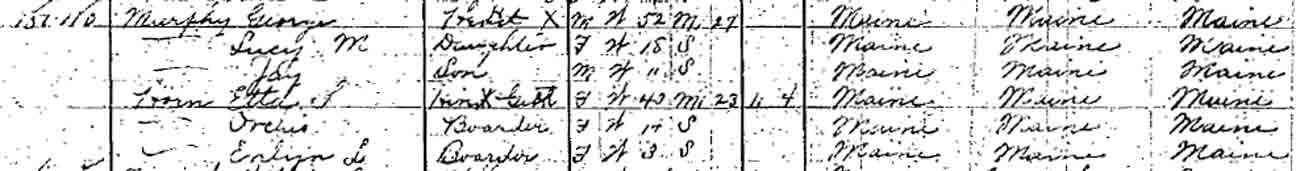 157 170 Murphy George Head X M W 52 M 27 Maine Maine Maine
— Lucy M Daughter F W 18 S Maine Maine Maine
— Jay Son M W 11 S Maine Maine Maine
Horn Etta F W 43 M 23 11 4 Maine Maine Maine
— Orchis Boarder F W 14 S Maine Maine Maine
— Evelyn L Boarder F W 3 S Maine Maine Maine